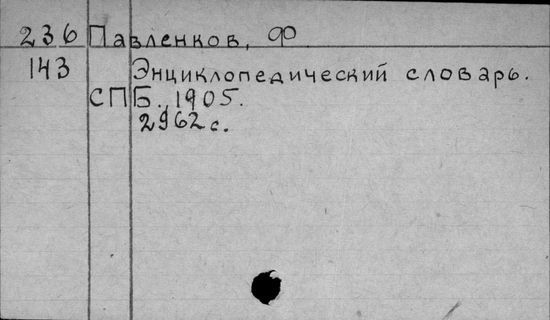 236 Павленков, Ф.
143 Энциклопедический словарь.
СПБ., 1905.
2962 с.